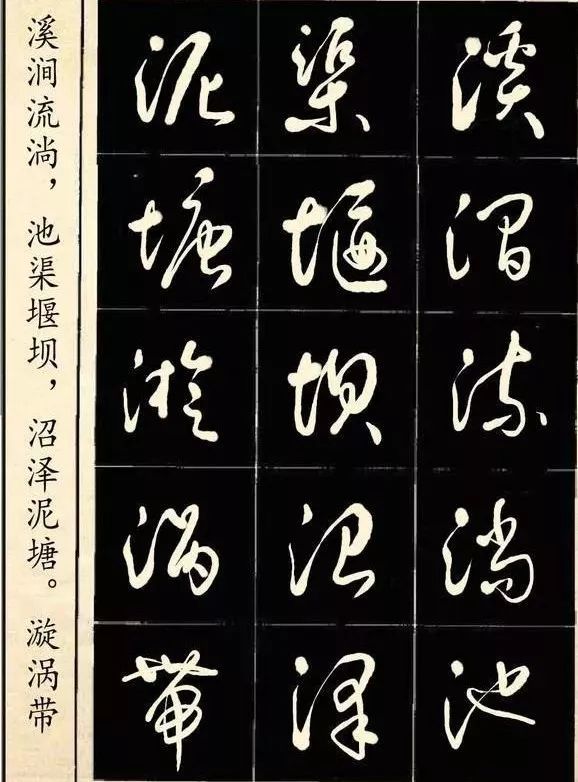 溪涧流淌，池渠堰坝，沼泽泥塘。漩涡带
溪涧流淌池
渠堰坝沼泽
泥塘漩涡带